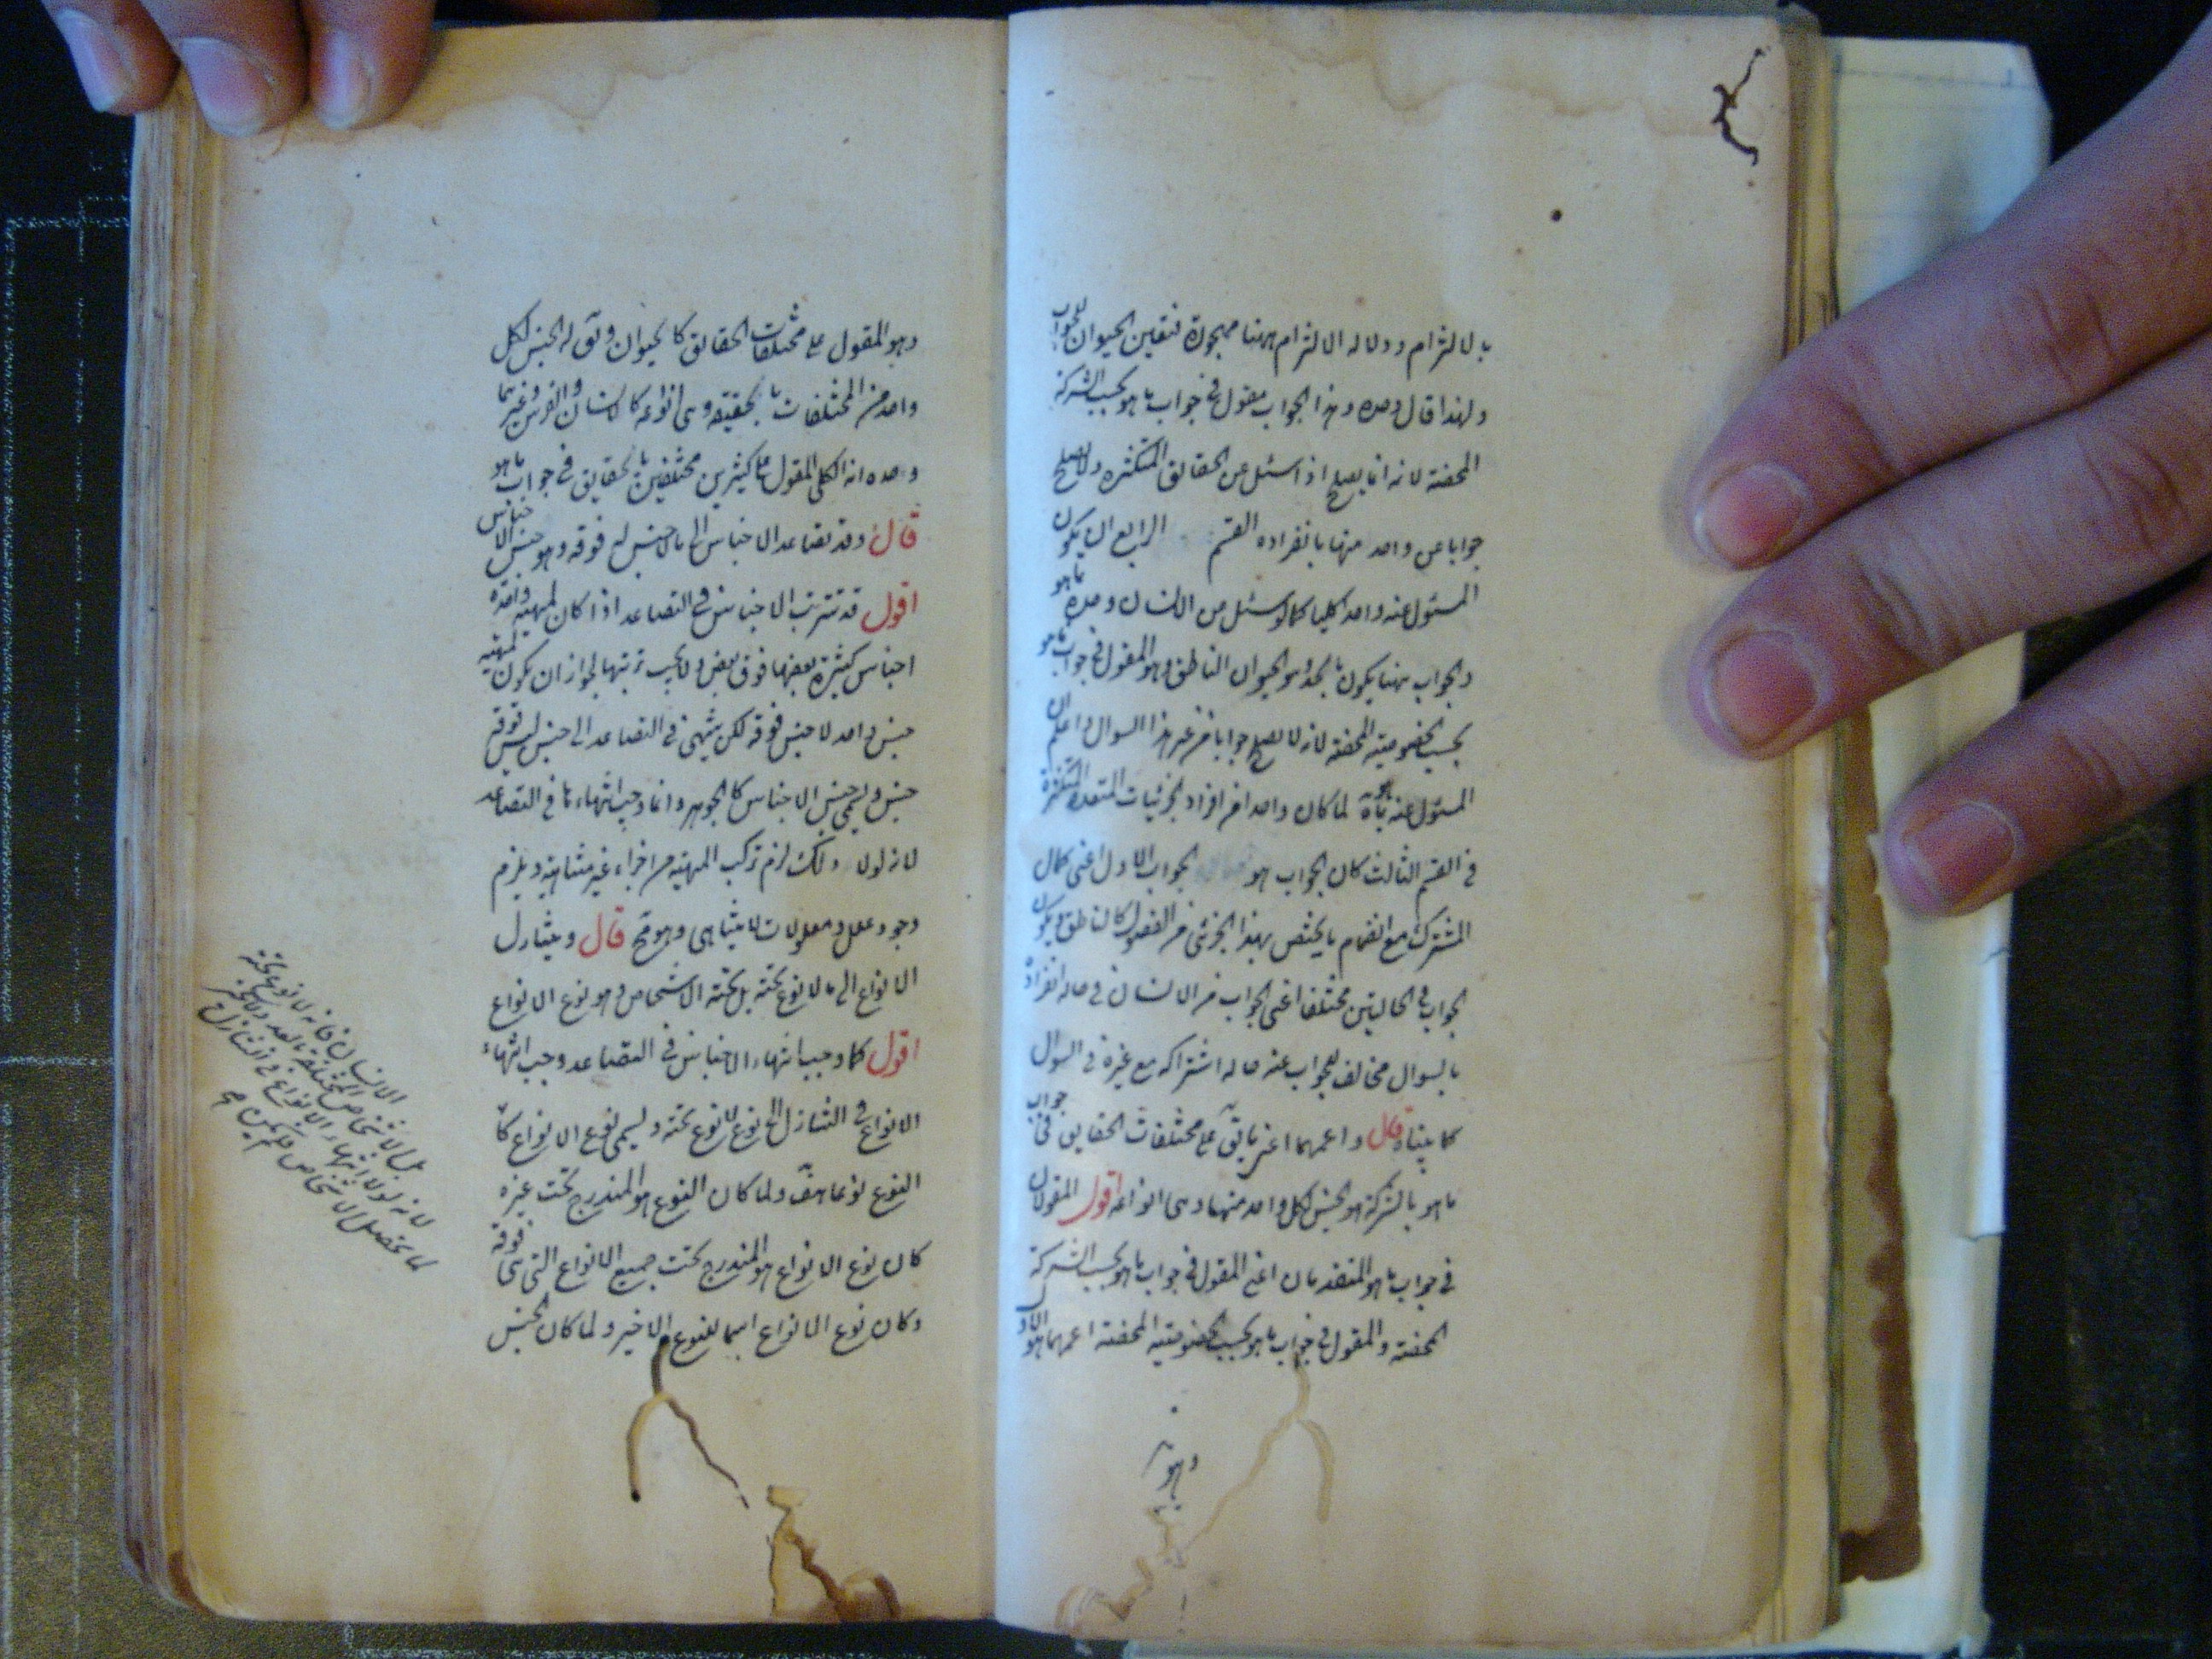 بالالتزام ودلالة الالتزام ههنا مهجورة فتعين الحيوان للجواب
ولهذا قال وحده وهذا الجواب مقول في جواب ما هو بحسب الشركة
المحضة لانه انما يصلح اذا سئل عن الحقايق المتكثرة ولا يصلح
جوابا عن واحد منها بانفراده القسم الرابع ان يكون
المسئول عنه واحدا كليا كما لو سئل عن الانسان وحده ما هو
والجواب ههنا يكون بالحد وهو الحيوان الناطق وهو المقول في جواب ما هو
بحسب الخصوصية المحضة لانه لا يصلح جوابا عن غير هذا السوال واعلم ان
المسئول عنه لما كان واحدا من افراد الجزئيات المتعددة المتكثرة
في القسم الثالث كان الجواب هو الجواب الاول اعني كمال
المشترك مع انضمام ما يختص بهذا الجزئي من الفصول كالناطق ويكون
الجواب في الحالتين مختلفا اعني الجواب عن الانسان في حاله انفراده
بالسوال مخالف للجواب عنه حاله اشتراكه مع غيره في السوال
كما بيناه قال واعمهما اعني ما يق على مختلفات الحقايق في جواب
ما هو بالشركة هو الجنس لكل واحد منها وهى انواعه اقول المقولان
في جواب ما هو المتقدمان اعني المقول في جواب ما هو بحسب الشركة
المحضة والمقول في جواب ما هو بحسب الخصوصية المحضة اعمهما هو الاول
وهو
وهو المقول على مختلفات الحقايق كالحيوان ويق له الجنس لكل
واحد من المختلفات بالحقيقة وهى انواعه كالانسان والفرس وغيرهما
وحده انه الكلى المقول على كثيرين مختلفين بالحقايق في جواب ما هو
قال وقد تتصاعد الاجناس الى ما لا جنس له فوقه وهو جنس الاجناس
اقول قد تترتب الاجناس في التصاعد اذا كان لمهية واحدة
اجناس كثيرة بعضها فوق بعض ولا يجب ترتبها لجواز ان يكون لمهية
جنس واحد لا جنس فوقه لكن ينتهى في التصاعد الى جنس ليس فوقه
جنس ويسمى جنس الاجناس كالجوهر وانما وجب انتهاءها في التصاعد
لانه لولا ذلك لزم تركب المهية من اجزاء غير متناهية ويلزم
وجود علل ومعلولات لا يتناهى وهو مح قال ويتنازل
الانواع الى ما لا نوع تحته بل تحته الاشخاص وهو نوع الانواع
اقول كما وجب انتهاء الاجناس في التصاعد وجب انتهاء
الانواع في التنازل الى نوع لا نوع تحته ويسمى نوع الانواع
النوع نوعا ولما كان النوع هو المندرج تحت غيره
كان نوع الانواع هو المندرج تحت جميع الانواع التى هى فوقه
وكان نوع الانواع اسما للنوع الاخير ولما كان الجنس
الانسان فانه لا نوع تحته
بل الاشخاص المختلفة بالعدد
لانه لولا انتهاء الانواع في التنازل
لما تحصل الاشخاص